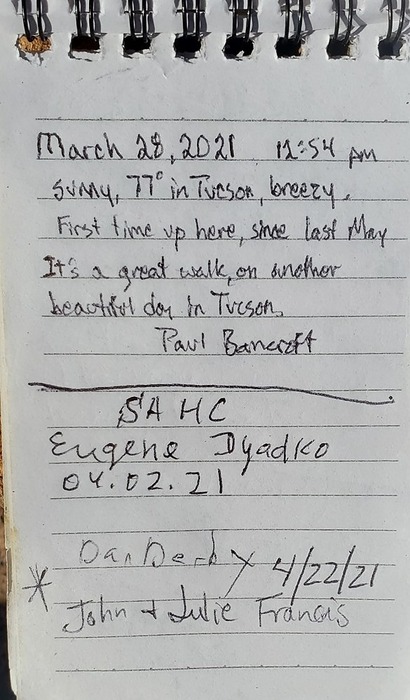 March 28, 2021 12:54 pm
sunny, 77° in Tucson, breezy.
First time up here, since last May
It's a great walk, on another
beautiful day in Tucson.
Paul Bancroft
SAHC
Eugene Dyadko
04.02.21
Dan 4/22/21
* John + Julie Francis